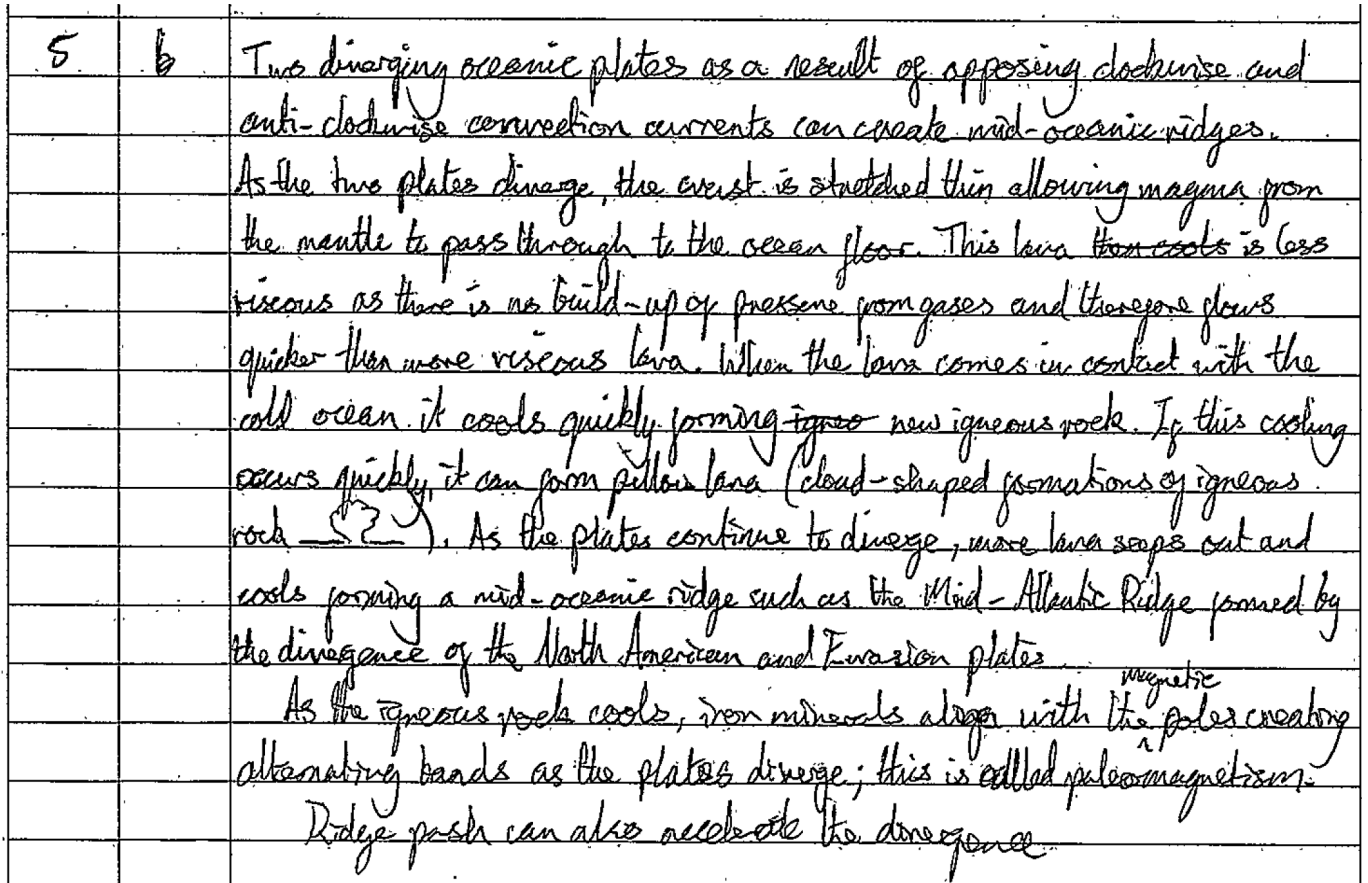 5 b Two diverging oceanic plates as a result of opposing clockwise and
anti-clockwise convection currents can create mid-oceanic ridges.
As the two plates diverge, the crust is stretched thin allowing magma from
the mantle to pass through to the ocean floor. This lava then cools is less
viscous as there is no build-up of pressure from gases and therefore flows
quicker than more viscous lava. When the lava comes in contact with the
cold ocean it cools quickly forming igneo new igneous rock. If this cooling
occurs quickly, it can form pillow lava (cloud-shaped formations of igneous
rock ). As the plates continue to diverge, more lava seeps out and
cools forming a mid-oceanic ridge such as the Mid-Atlantic Ridge formed by
the divergence of the North American and Eurasion plates.
As the igneous rock cools, iron minerals align with the magnetic poles creating
alternating bands as the plates diverge; this is called paleomagnetism.
Ridge push can also accelerate the divergence